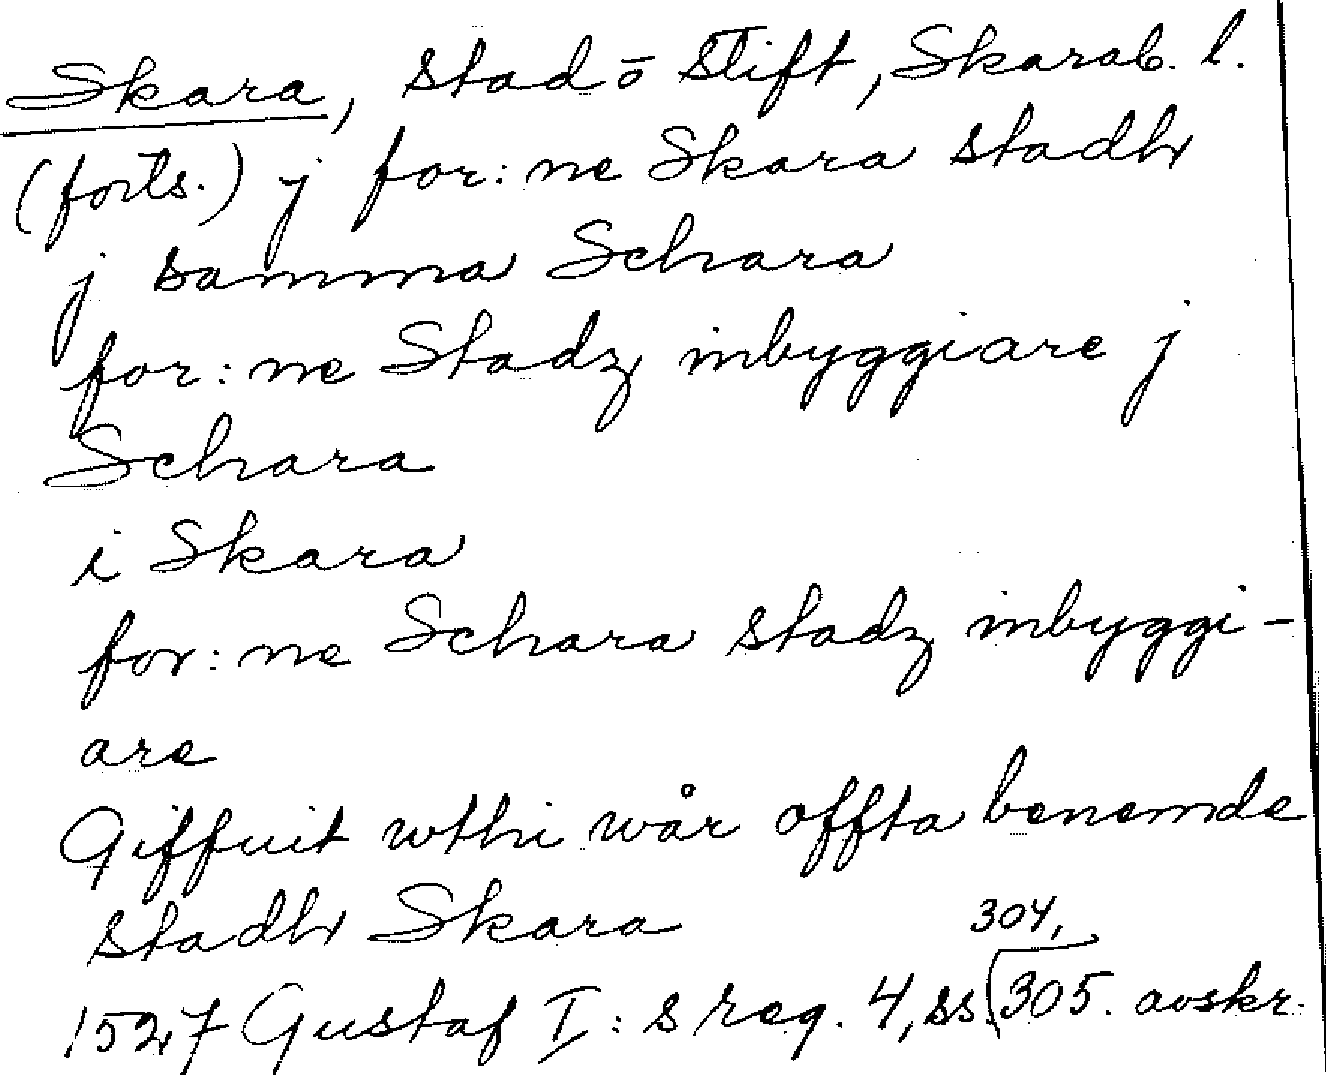 Skara, stad ō stift, Skarab. l.
(forts.) j for:ne Skara stadh
j samma Schara
for:ne Stadz inbyggiare j
Schara
i Skara
for:ne Schara stadz inbyggi-
are
Giffuit wthi wår offta benemde
stadh Skara
1527 Gustaf I:s reg. 4, ss. 304, 305. avskr.